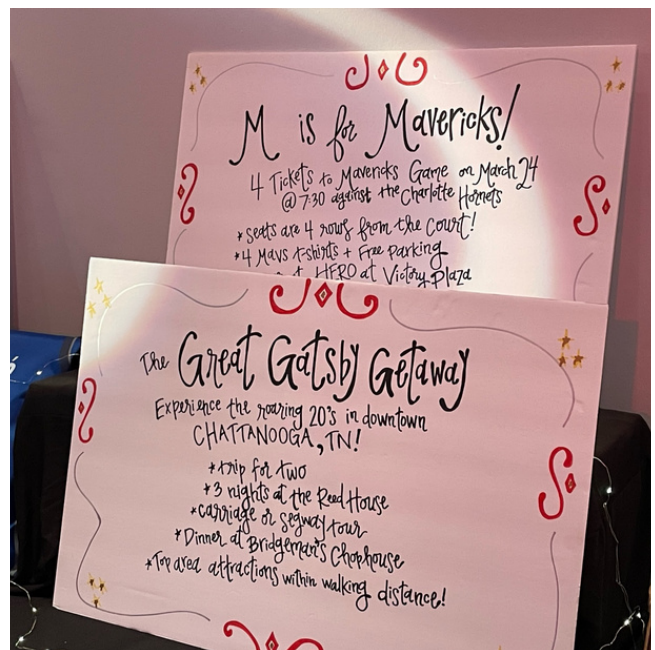 M is for Mavericks!
4 Tickets to Mavericks Game on March 24
@ 7:30 against the Charlotte Hornets
* seats are 4 rows from the court!
* 4 Mavs t-shirts + Free Parking
at HERO at Victory Plaza
The Great Gatsby Getaway
Experience the roaring 20's in downtown
CHATTANOOGA, TN!
* trip for two
* 3 nights at the Reed House
* carriage or segway tour
* Dinner at Bridgeman's Chophouse
* Top area attractions within walking distance!